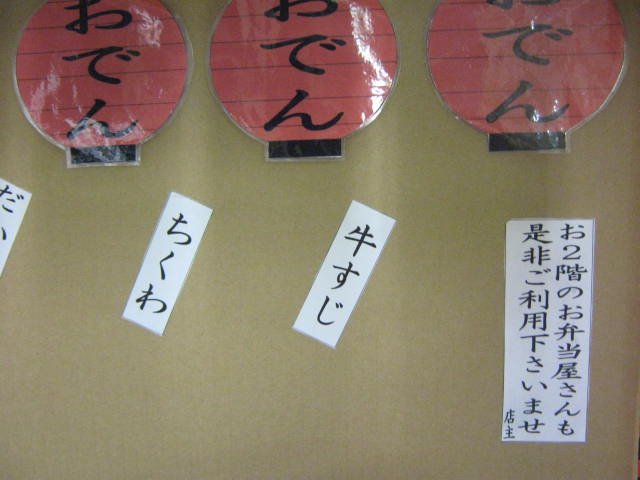 おでん
おでん
おでん
だい
ちくわ
牛すじ
お2階のお弁当屋さんも
是非ご利用下さいませ
店主